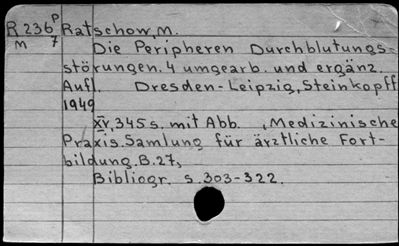 R 236 P Ratschow, M.
M 7 Die Peripheren Durchblutungs-
störungen. 4 umgearb. und ergänz.
Aufl. Dresden-Leipzig, Steinkopff
1949
XV, 345 s. mit Abb. , Medizinische
Praxis. Samlung für ärztliche Fort-
bildung. B. 27,
Bibliogr. s. 303-322.